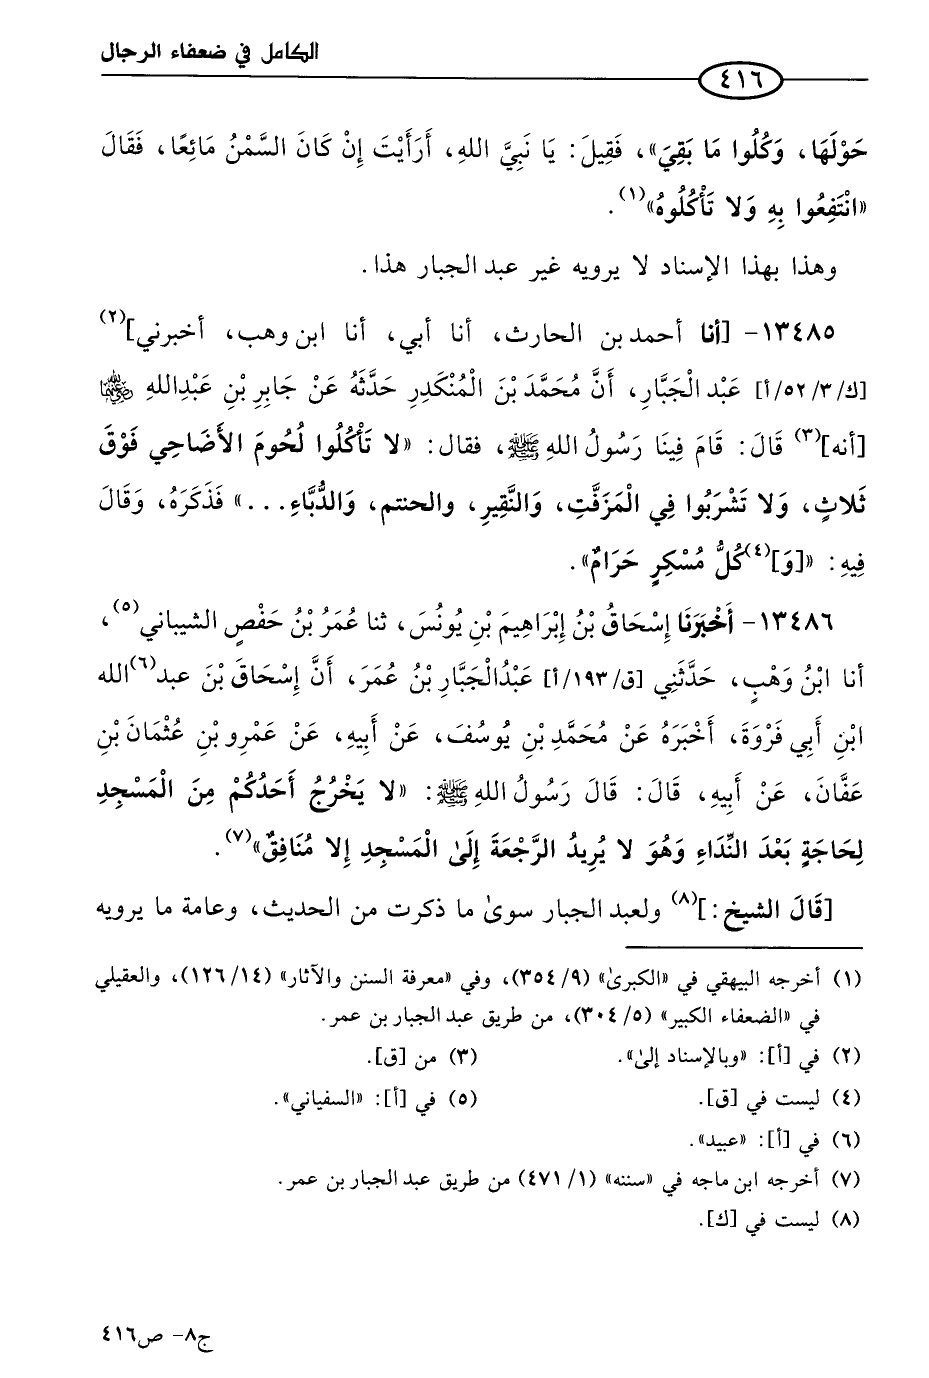 الكامل في ضعفاء الرجال
٤١٦
حَوْلَهَا، وَكُلُوا مَا بَقِيَ»، فَقِيلَ: يَا نَبِيَّ اللهِ، أَرَأَيْتَ إِنْ كَانَ السَّمْنُ مَائِعًا، فَقَالَ
«انْتَفِعُوا بِهِ وَلا تَأْكُلُوهُ»(١).
وهذا بهذا الإسناد لا يرويه غير عبد الجبار هذا.
١٣٤٨٥- [أنا أحمد بن الحارث، أنا أبي، أنا ابن وهب، أخبرني](٢)
[ك/٣/٥٢/أ] عَبْد الْجَبَّارِ، أَنَّ مُحَمَّدَ بْنَ الْمُنْكَدِرِ حَدَّثَهُ عَنْ جَابِرِ بْنِ عَبْدِاللهِ ﵁
[أنه](٣) قَالَ: قَامَ فِينَا رَسُولُ اللهِ ﷺ، فقال: «لا تَأْكُلُوا لُحُومَ الأَضَاحِي فَوْقَ
ثَلاثٍ، وَلا تَشْرَبُوا فِي الْمَزَفَّتِ، وَالنَّقِيرِ، والحنتم، وَالدُّبَّاءِ...» فَذَكَرَهُ، وَقَالَ
فِيهِ: «[وَ](٤)كُلُّ مُسْكِرٍ حَرَامٌ».
١٣٤٨٦- أَخْبَرَنَا إِسْحَاقُ بْنُ إِبْرَاهِيمَ بْنِ يُونُسَ، ثنا عُمَرُ بْنُ حَفْصٍ الشيباني(٥)،
أنا ابْنُ وَهْبٍ، حَدَّثَنِي [ق/١٩٣/أ] عَبْدُالْجَبَّارِ بْنُ عُمَرَ، أَنَّ إِسْحَاقَ بْنَ عبد(٦)الله
ابْنِ أَبِي فَرْوَةَ، أَخْبَرَهُ عَنْ مُحَمَّدِ بْنِ يُوسُفَ، عَنْ أَبِيهِ، عَنْ عَمْرِو بْنِ عُثْمَانَ بْنِ
عَفَّانَ، عَنْ أَبِيهِ، قَالَ: قَالَ رَسُولُ اللهِ ﷺ: «لا يَخْرُجُ أَحَدُكُمْ مِنَ الْمَسْجِدِ
لِحَاجَةٍ بَعْدَ النِّدَاءِ وَهُوَ لا يُرِيدُ الرَّجْعَةَ إِلَىٰ الْمَسْجِدِ إِلا مُنَافِقٌ»(٧).
[قَالَ الشيخ:](٨) ولعبد الجبار سوىٰ ما ذكرت من الحديث، وعامة ما يرويه
(١) أخرجه البيهقي في «الكبرىٰ» (٩/٣٥٤)، وفي «معرفة السنن والآثار» (١٤/١٢٦)، والعقيلي
في «الضعفاء الكبير» (٥/٣٠٤)، من طريق عبد الجبار بن عمر.
(٢) في [أ]: «وبالإسناد إلىٰ». (٣) من [ق].
(٤) ليست في [ق]. (٥) في [أ]: «السفياني».
(٦) في [أ]: «عبيد».
(٧) أخرجه ابن ماجه في «سننه» (١/٤٧١) من طريق عبد الجبار بن عمر.
(٨) ليست في [ك].
ج٨- ص٤١٦